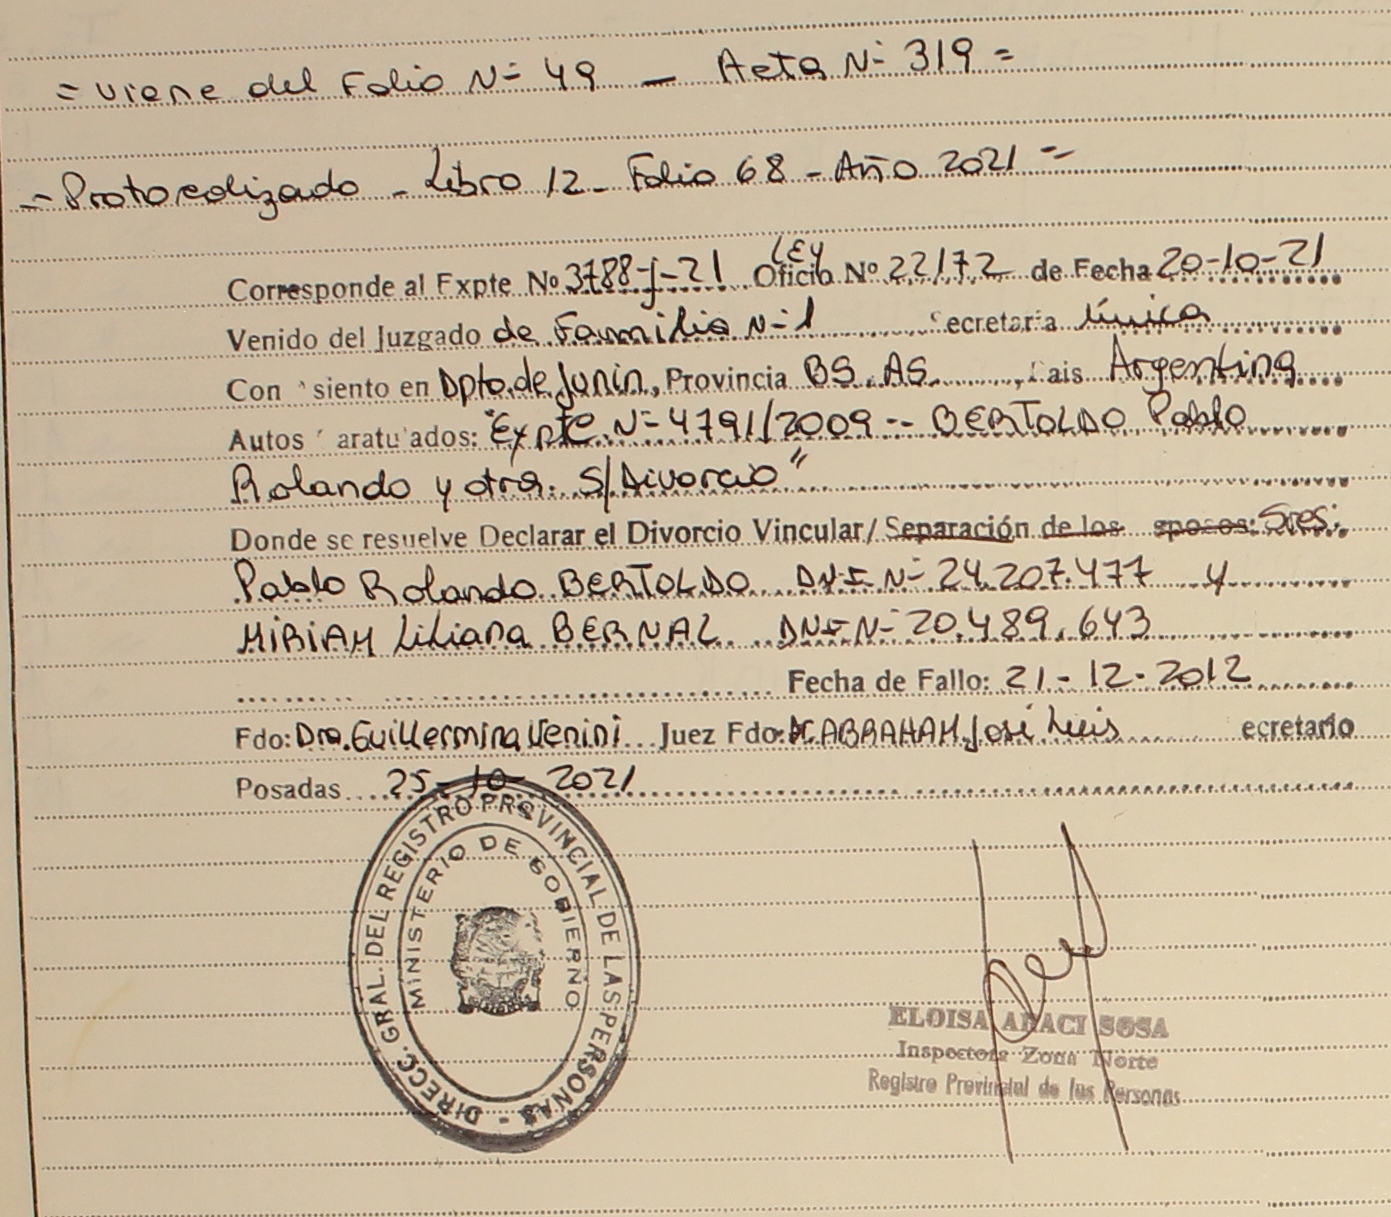 = Viene del Folio Nº 49 — Acta Nº 319 =
= Protocolizado - Libro 12 - Folio 68 - Año 2021 =
Corresponde al Expte No 3788-J-21 LEY Oficio Nº 22172 de Fecha 20-10-21
Venido del Juzgado de Familia Nº 1 Secretaría Única
Con asiento en Dpto. de Junín, Provincia BS. AS. País Argentina
Autos Caratulados: "Expte Nº 4791/2009 -- BERTOLDO Pablo
Rolando y otra. S/Divorcio"
Donde se resuelve Declarar el Divorcio Vincular/Separación de los esposos: Sres:
Pablo Rolando BERTOLDO DNI Nº 24.207.477 y
MIRIAM Liliana BERNAL DNI Nº 20.489.643
Fecha de Fallo: 21-12-2012
Fdo: Dra. Guillermina Venini Juez Fdo: Dr. ABRAHAM José Luis ecretario
Posadas 25-10-2021
DIRECC. GRAL. DEL REGISTRO PROVINCIAL DE LAS PERSONAS -
MINISTERIO DE GOBIERNO
ELOISA ARACI SOSA
Inspectora Zona Norte
Registro Provincial de las Personas